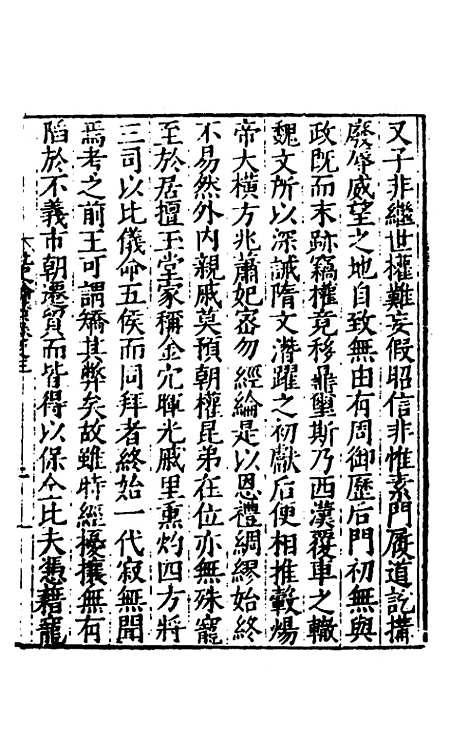 又子非繼世權難妄假昭信非惟素門履道訖搆
廢辱威望之地自致無由有周御歷后門初無與
政既而末跡竊權竟移鼎璽斯乃西漢覆車之轍
魏文所以深誡隋文潛躍之初獻后便相推轂煬
帝大橫方兆蕭妃密勿經綸是以恩禮綢繆始終
不易然外内親戚莫預朝權昆弟在位亦無殊寵
至於居擅玉堂家稱金穴暉光戚里熏灼四方將
三司以比儀命五侯而同拜者終始一代寂無聞
焉考之前王可謂矯其弊矣故雖時經擾攘無有
陷於不義市朝遷貿而皆得以保全比夫憑藉寵